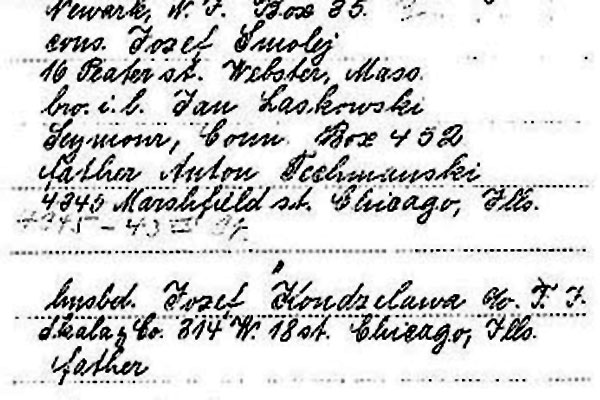 Newark, N. J. Box 35.
cous. Jozef Smolej
16 Peater st. Webster, Mass.
bro. i. l. Jan Laskowski
Seymour, Conn Box 452
father Anton Techmanski
4345 Marshfield st. Chicago, Ills.
husbd. Jozef Kondzelawa c/o. T. J.
Skalaz Co. 314 W. 18 st. Chicago, Ills.
father